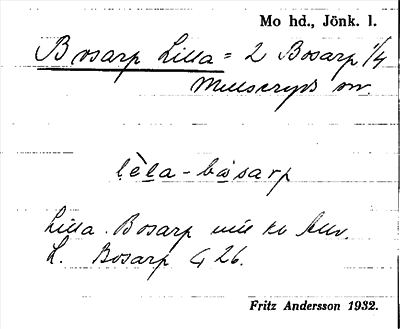 Mo hd., Jönk. l.
Bosarp Lilla = 2 Bosarp 1/4
Mulseryds sn.
lèla - båsarp
Lilla Bosarp
L. Bosarp G 26.
Fritz Andersson 1932.